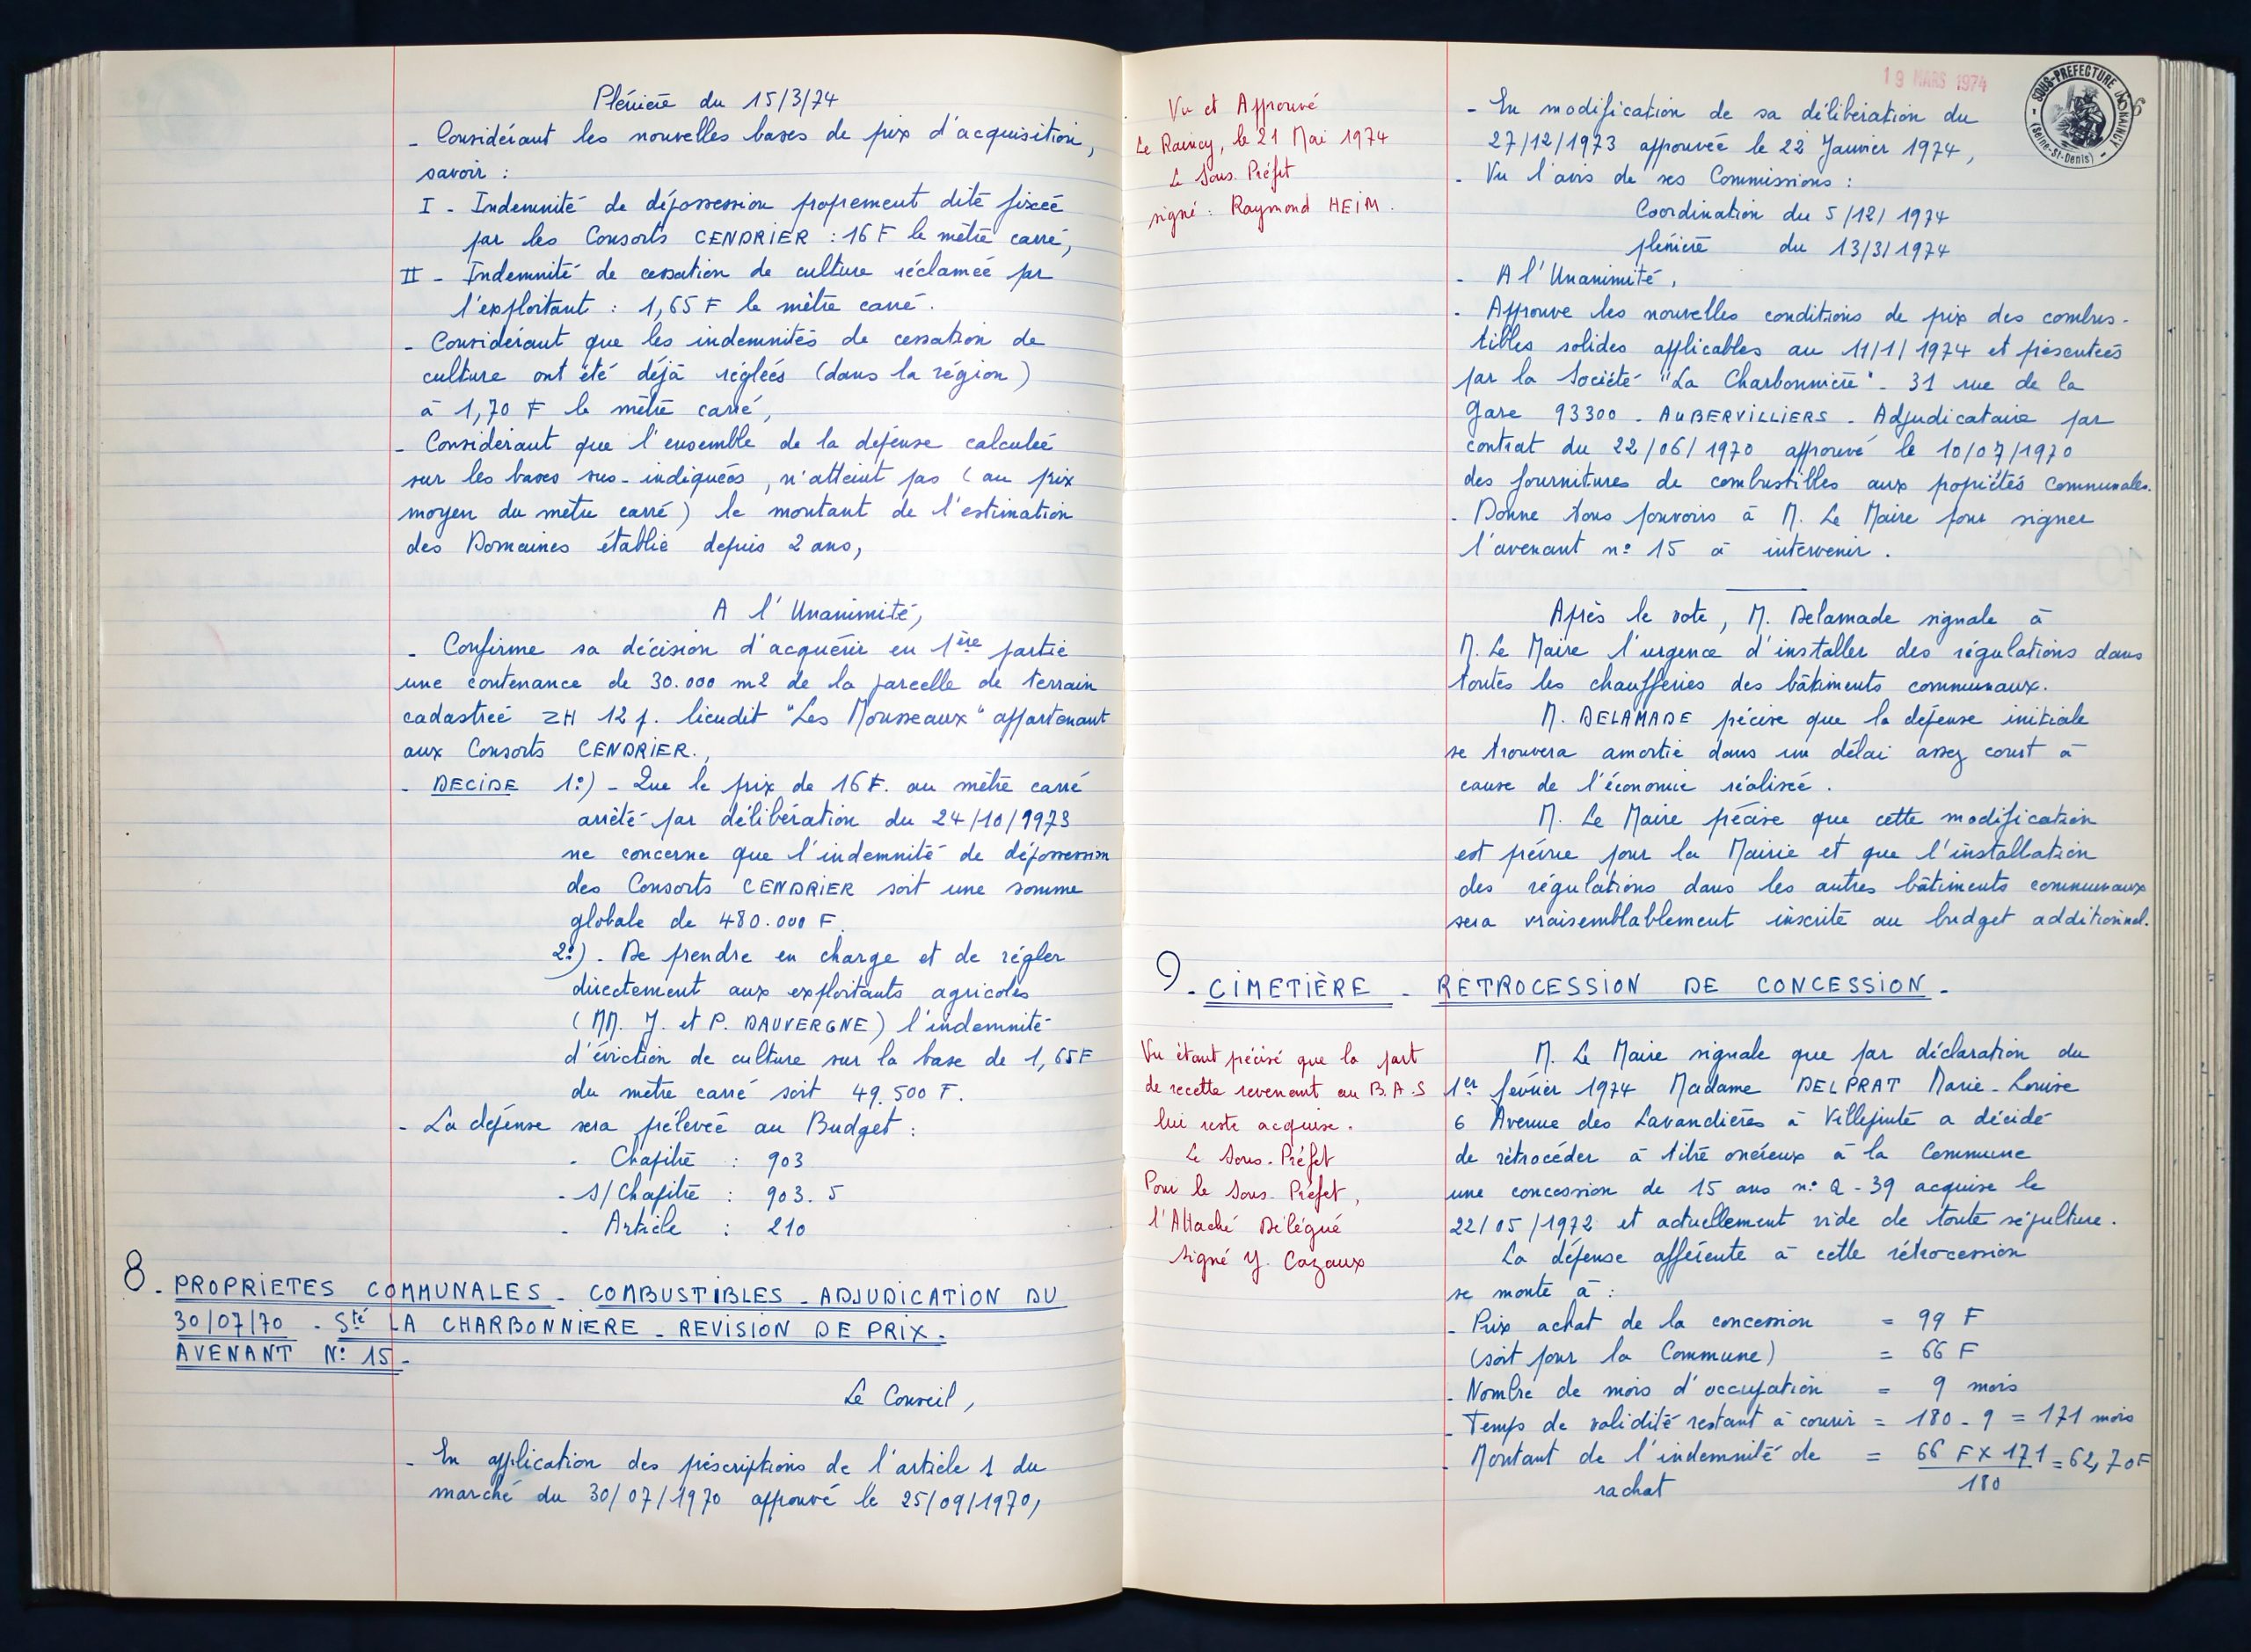 Plénière du 15/3/74
- Considérant les nouvelles bases de prix d'acquisition,
savoir :
I - Indemnité de dépossession proprement dite fixée
par les Consorts CENDRIER : 16 F le mètre carré,
II - Indemnité de cessation de culture réclamée par
l'exploitant : 1,65 F le mètre carré.
- Considérant que les indemnités de cessation de
culture ont été déjà réglées (dans la région)
à 1,70 F le mètre carré,
- Considérant que l'ensemble de la dépense calculée
sur les bases sus-indiquées, n'atteint pas (au prix
moyen du mètre carré) le montant de l'estimation
des Domaines établie depuis 2 ans,
A l'Unanimité,
- Confirme sa décision d'acquérir en 1ère partie
une contenance de 30.000 m2 de la parcelle de terrain
cadastrée ZH 12 p. lieudit "Les Mousseaux" appartenant
aux Consorts CENDRIER.,
- DECIDE 1°) - Que le prix de 16 F. au mètre carré
arrêté par délibération du 24/10/1973
ne concerne que l'indemnité de dépossession
des Consorts CENDRIER soit une somme
globale de 480.000 F.
2°) - De prendre en charge et de régler
directement aux exploitants agricoles
(MM. J. et P. DAUVERGNE) l'indemnité
d'éviction de culture sur la base de 1,65 F
du mètre carré soit 49.500 F.
- La dépense sera prélevée au Budget :
- Chapitre : 903
- S/Chapitre : 903.5
- Article : 210
8 - PROPRIETES COMMUNALES - COMBUSTIBLES - ADJUDICATION DU
30/07/70 - Sté LA CHARBONNIERE - REVISION DE PRIX -
AVENANT N° 15 -
Le Conseil,
- En application des préscriptions de l'article 1 du
marché du 30/07/1970 approuvé le 25/09/1970,
19 MARS 1974
SOUS-PREFECTURE DU RAINCY
(Seine-St-Denis)
Vu et Approuvé
Le Raincy, le 21 Mai 1974
Le Sous-Préfet
signé : Raymond HEIM.
- En modification de sa délibération du
27/12/1973 approuvée le 22 Janvier 1974,
- Vu l'avis de ses Commissions :
Coordination du 5/12/1974
plénière du 13/3/1974
- A l'Unanimité,
- Approuve les nouvelles conditions de prix des combus-
tibles solides applicables au 11/1/1974 et présentées
par la Société "La Charbonnière" - 31 rue de la
Gare 93300 - AUBERVILLIERS - Adjudicataire par
contrat du 22/06/1970 approuvé le 10/07/1970
des fournitures de combustibles aux propiétés communales.
- Donne tous pouvoirs à M. Le Maire pour signer
l'avenant n° 15 à intervenir.
Après le vote, M. Delamade signale à
M. Le Maire l'urgence d'installer des régulations dans
toutes les chaufferies des bâtiments communaux.
M. DELAMADE précise que la dépense initiale
se trouvera amortie dans un délai assez court à
cause de l'économie réalisée.
M. Le Maire précise que cette modification
est prévue pour la Mairie et que l'installation
des régulations dans les autres bâtiments communaux
sera vraisemblablement inscrite au budget additionnel.
9 - CIMETIÈRE - RETROCESSION DE CONCESSION -
Vu étant précisé que la part
de recette revenant au B.A.S
lui reste acquise.
Le Sous-Préfet
Pour le Sous-Préfet,
l'Attaché Délégué
Signé Y. Cazaux
M. Le Maire signale que par déclaration du
1er février 1974 Madame DELPRAT Marie-Louise
6 Avenue des Lavandières à Villepinte a décidé
de rétrocéder à titre onéreux à la Commune
une concession de 15 ans n° Q-39 acquise le
22/05/1972 et actuellement vide de toute sépulture.
La dépense afférente à cette rétrocession
se monte à :
- Prix achat de la concession = 99 F
(soit pour la Commune) = 66 F
- Nombre de mois d'occupation = 9 mois
- Temps de validité restant à courir = 180 - 9 = 171 mois
- Montant de l'indemnité de = 66 F X 171 = 62,70 F
rachat 180